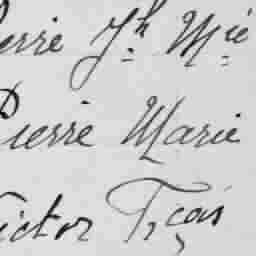 Pierre Jh Mie
Pierre Marie
Victor Fçois